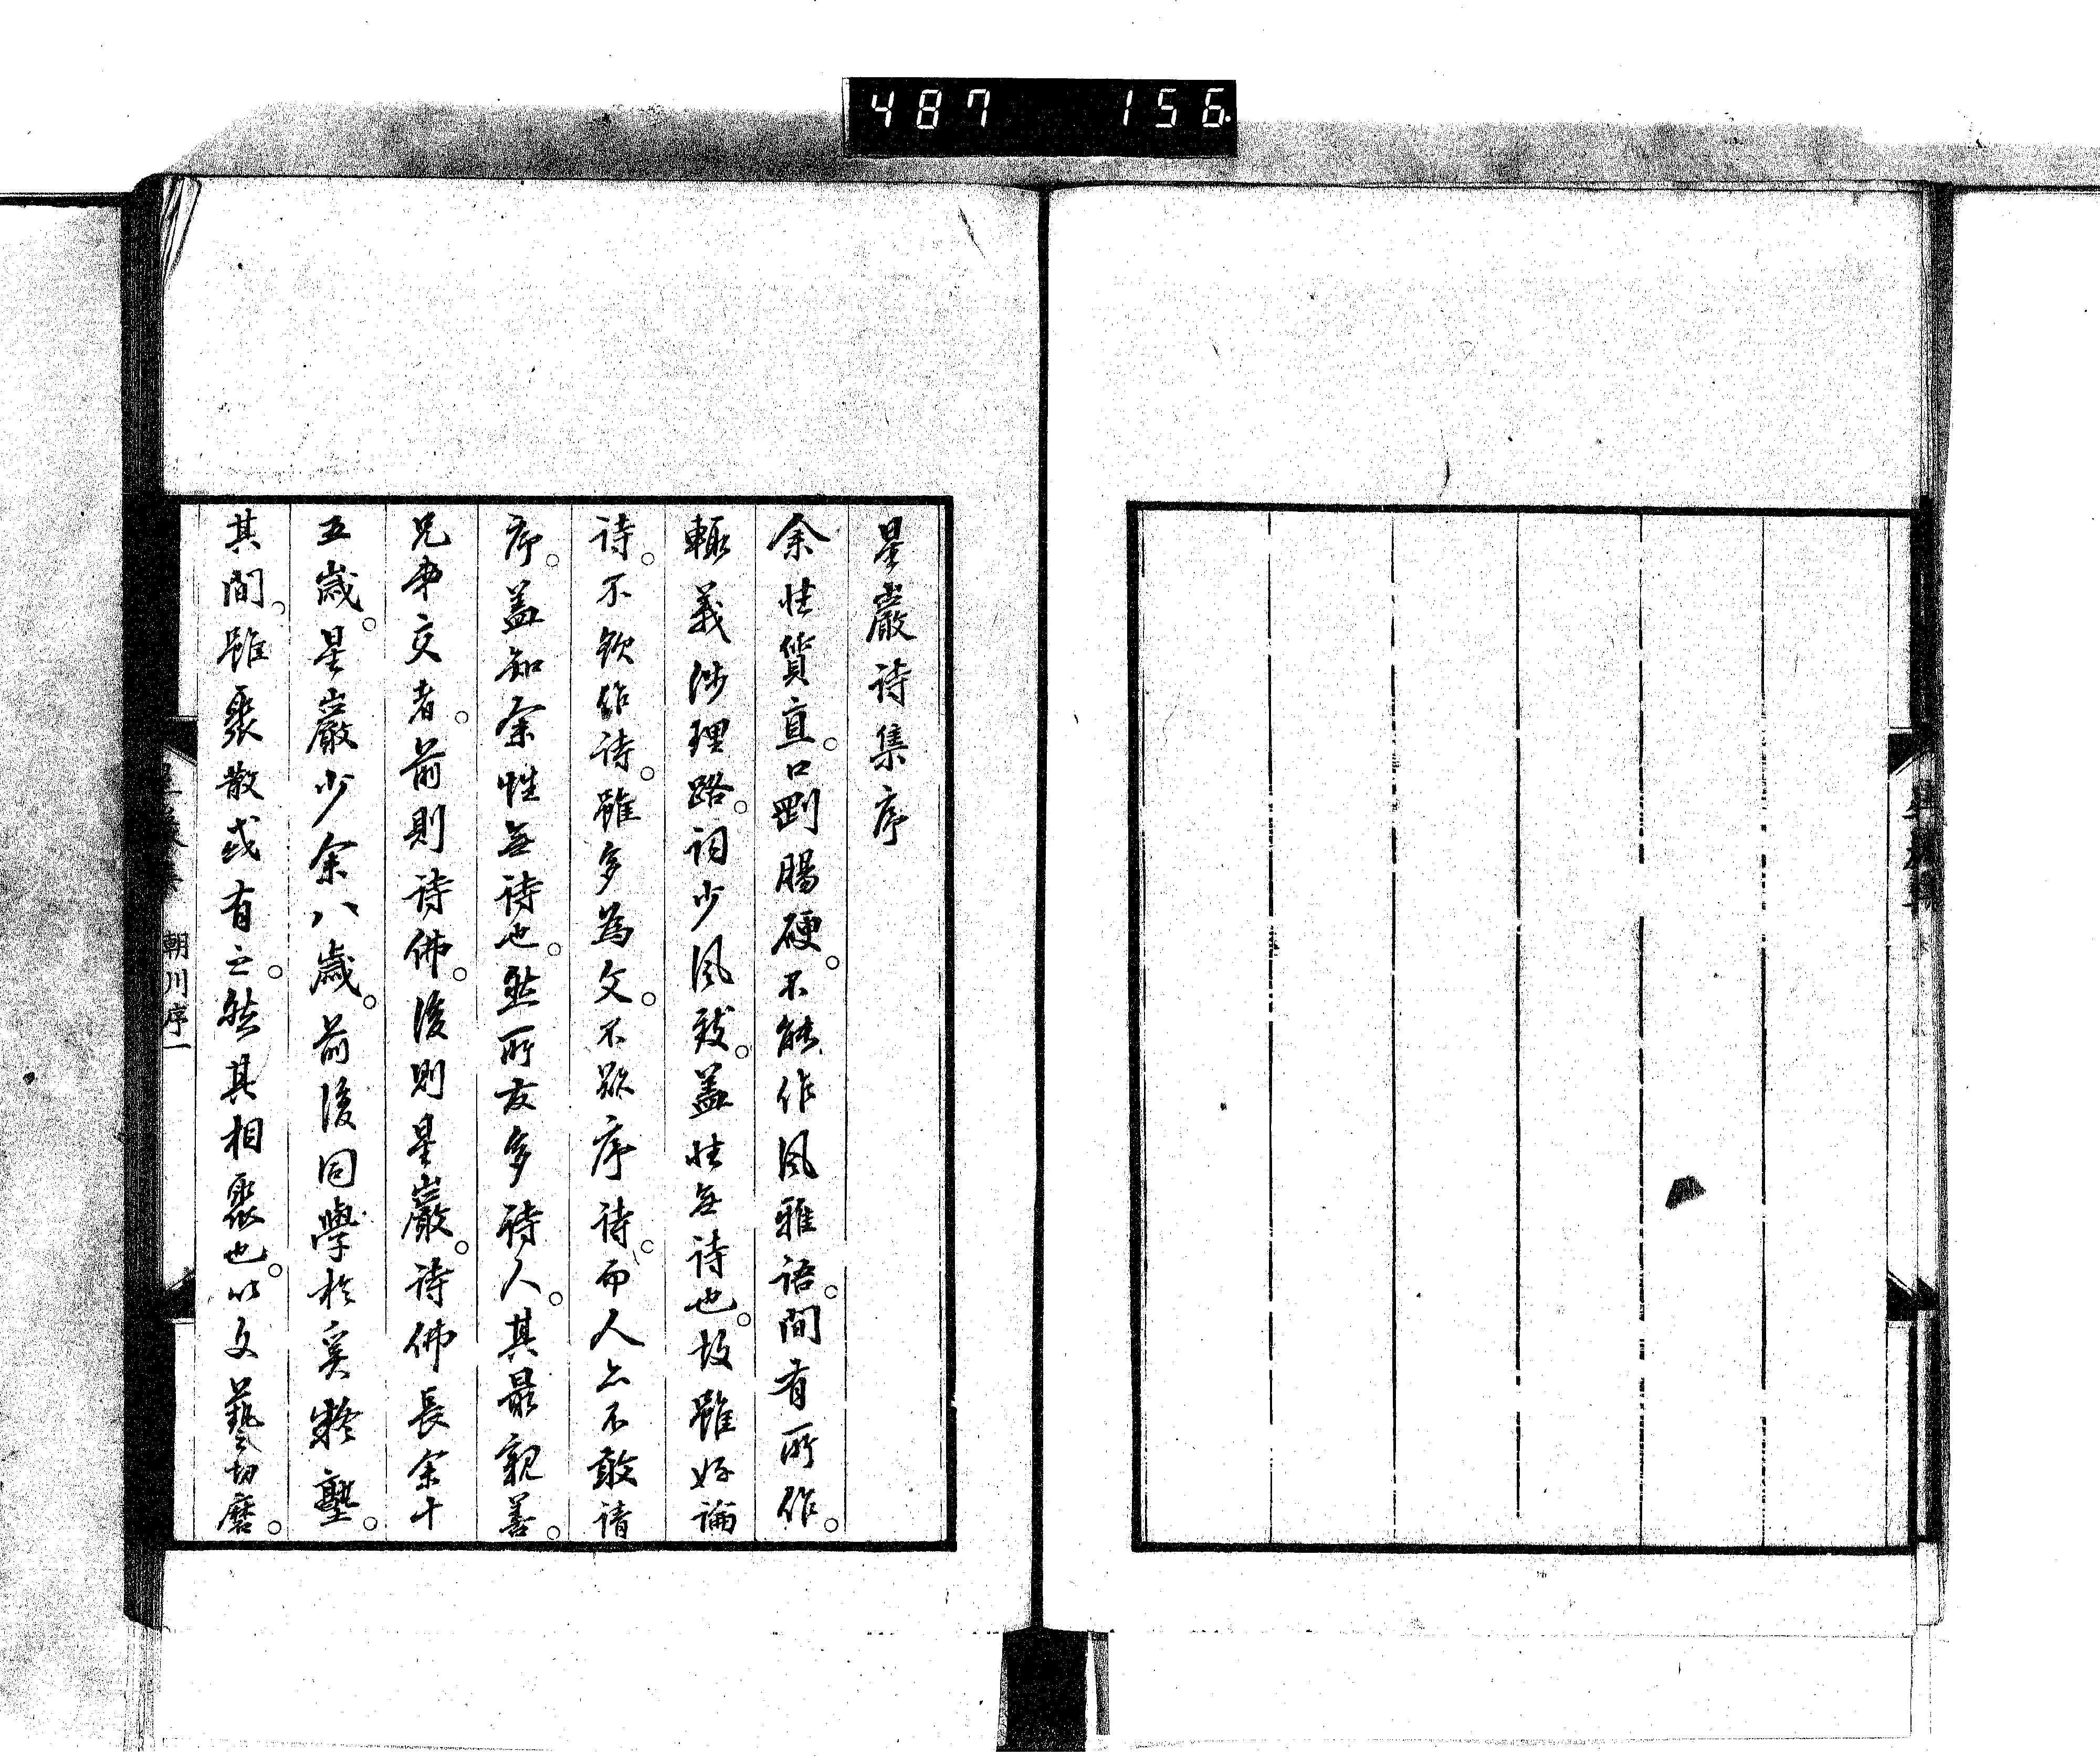 487 156
星巖詩集序
余性質直。口剛腸硬。不能作風雅語。間有所作。
輒義涉理路。詞少風致。蓋性無詩也。故雖好論
詩。不欲作詩。雖多為文。不欲序詩。而人亦不敢請
序。蓋知余性無詩也。然所友多詩人。其最親善。
兄弟交者。前則詩佛。後則星巖。詩佛長余十
五歲。星巖少余八歲。前後同學於奚疑塾。
其間。雖聚散或有之。然其相聚也。以文藝切磨。
朝川序一